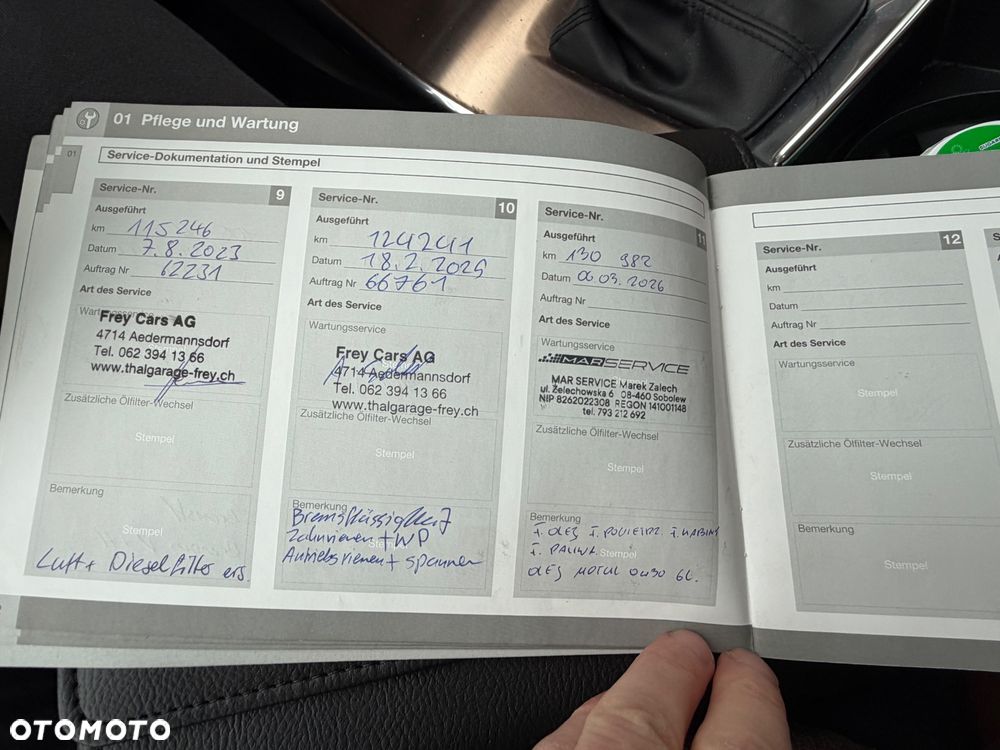 01 Pflege und Wartung
01
Service-Dokumentation und Stempel
Service-Nr. 9
Ausgeführt
km 115246
Datum 7.8.2023
Auftrag Nr 62231
Art des Service
Frey Cars AG
4714 Aedermannsdorf
Tel. 062 394 13 66
www.thalgarage-frey.ch
Zusätzliche Ölfilter-Wechsel
Stempel
Bemerkung
Stempel
Luft + Dieselfilter ers.
Service-Nr. 10
Ausgeführt
km 124241
Datum 18.2.2025
Auftrag Nr 66761
Art des Service
Wartungsservice
Frey Cars AG
4714 Aedermannsdorf
Tel. 062 394 13 66
www.thalgarage-frey.ch
Zusätzliche Ölfilter-Wechsel
Stempel
Bemerkung
Bremsflüssigkeit
Zahnriemen + WP
Antriebsriemen + Spanner
Service-Nr. 11
Ausgeführt
km 130 982
Datum 06 03. 2026
Auftrag Nr
Art des Service
Wartungsservice
MARSERVICE
MAR SERVICE Marek Zalech
ul. Żelechowska 6 08-460 Sobolew
NIP 8262022308 REGON 141001148
tel. 793 212 692
Zusätzliche Ölfilter-Wechsel
Stempel
Bemerkung
F. OLEJ F. POWIETRZ. F. KABINY
Stempel
F. PALIWA
OLEJ MOTUL 0W30 6L.
Service-Nr. 12
Ausgeführt
km
Datum
Auftrag Nr
Art des Service
Wartungsservice
Stempel
Zusätzliche Ölfilter-Wechsel
Stempel
Bemerkung
Stempel
OTOMOTO